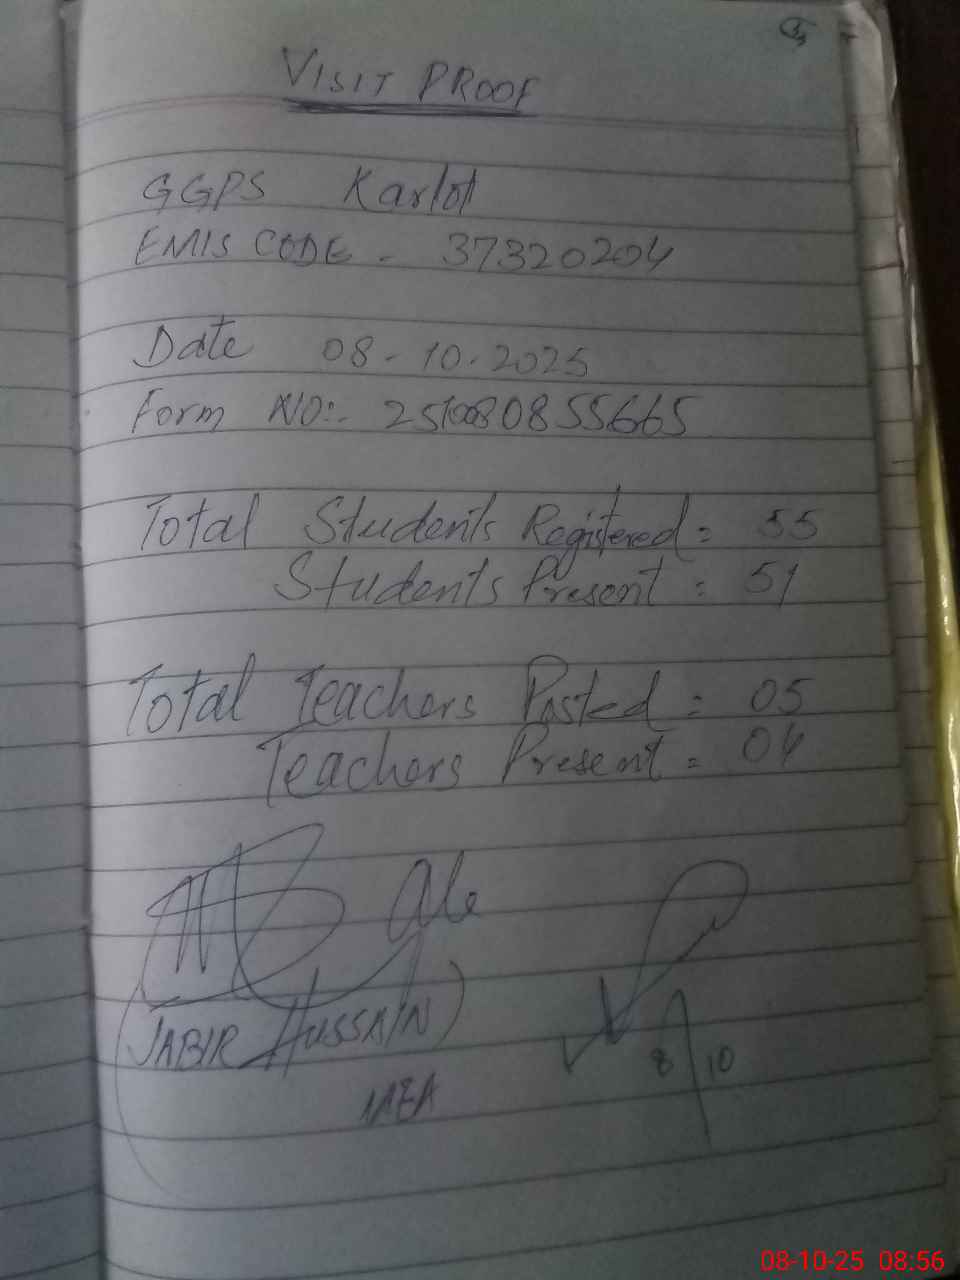 VISIT PROOF
GGPS Karlot
EMIS CODE - 37320204
Date 08-10-2025
Form NO:- 251080855665
Total Students Registered = 55
Students Present = 51
Total Teachers Posted = 05
Teachers Present = 04
(JABIR HUSSAIN)
MEA
8/10
08-10-25 08:56